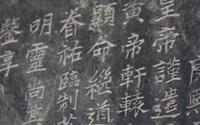 皇帝謹遣
黃帝軒轅
顯命繼道
眷祐臨制
明靈尚
鑒享